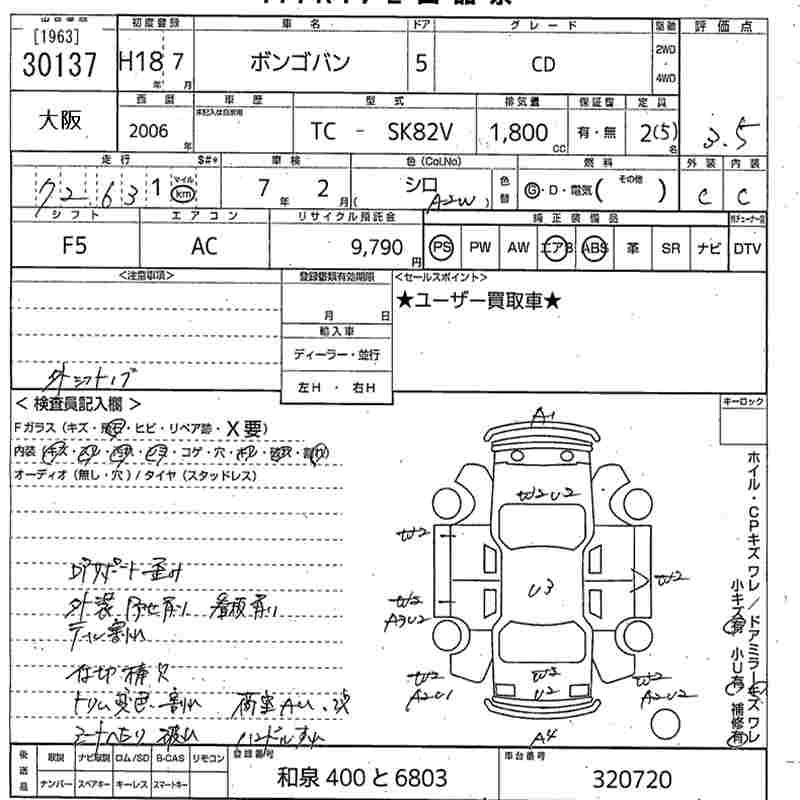 [1963]
30137
初度登録
H18 7
年 月
車名
ボンゴバン
ドア
5
グレード
CD
駆動
2WD
・
4WD
評価点
3.5
大阪
西暦
2006
年
車歴
未記入は自家用
型式
TC - SK82V
排気量
1,800
CC
保証書
有・無
定員
2(5)
名
走行
S#*
72,631
マイル
km
車検
7年 2月
色(Col.No)
シロ
( A2W )
色替
燃料
G・D・電気( その他 )
外装
C
内装
C
シフト
F5
エアコン
AC
リサイクル預託金
9,790
円
純正装備品
PS PW AW エアB ABS 革 SR ナビ DTV
<注意事項>
外シフトノブ
登録書類有効期限
月 日
輸入車
ディーラー・並行
左H ・ 右H
<セールスポイント>
★ユーザー買取車★
キーロック
<検査員記入欄>
Fガラス(キズ・飛石・ヒビ・リペア跡・X要)
オーディオ(無し・穴)/タイヤ(スタッドレス)
コアサポート歪み
テール割れ
トリム変色・割れ
シートへたり 破れ
ハンドルすれ
A1
W2 U2
W2
W2
U3
W2
A3U2
W2
A2U1
W2
U2
W2
A2U2
A4
ホイル・CPキズワレ/ドアミラーキズワレ
小キズ有 小U有 補修有
後送品
取説 ナビ取説 ロム/SD B-CAS リモコン
ナンバー スペアキー キーレス スマートキー
登録番号
和泉 400 と 6803
車台番号
320720